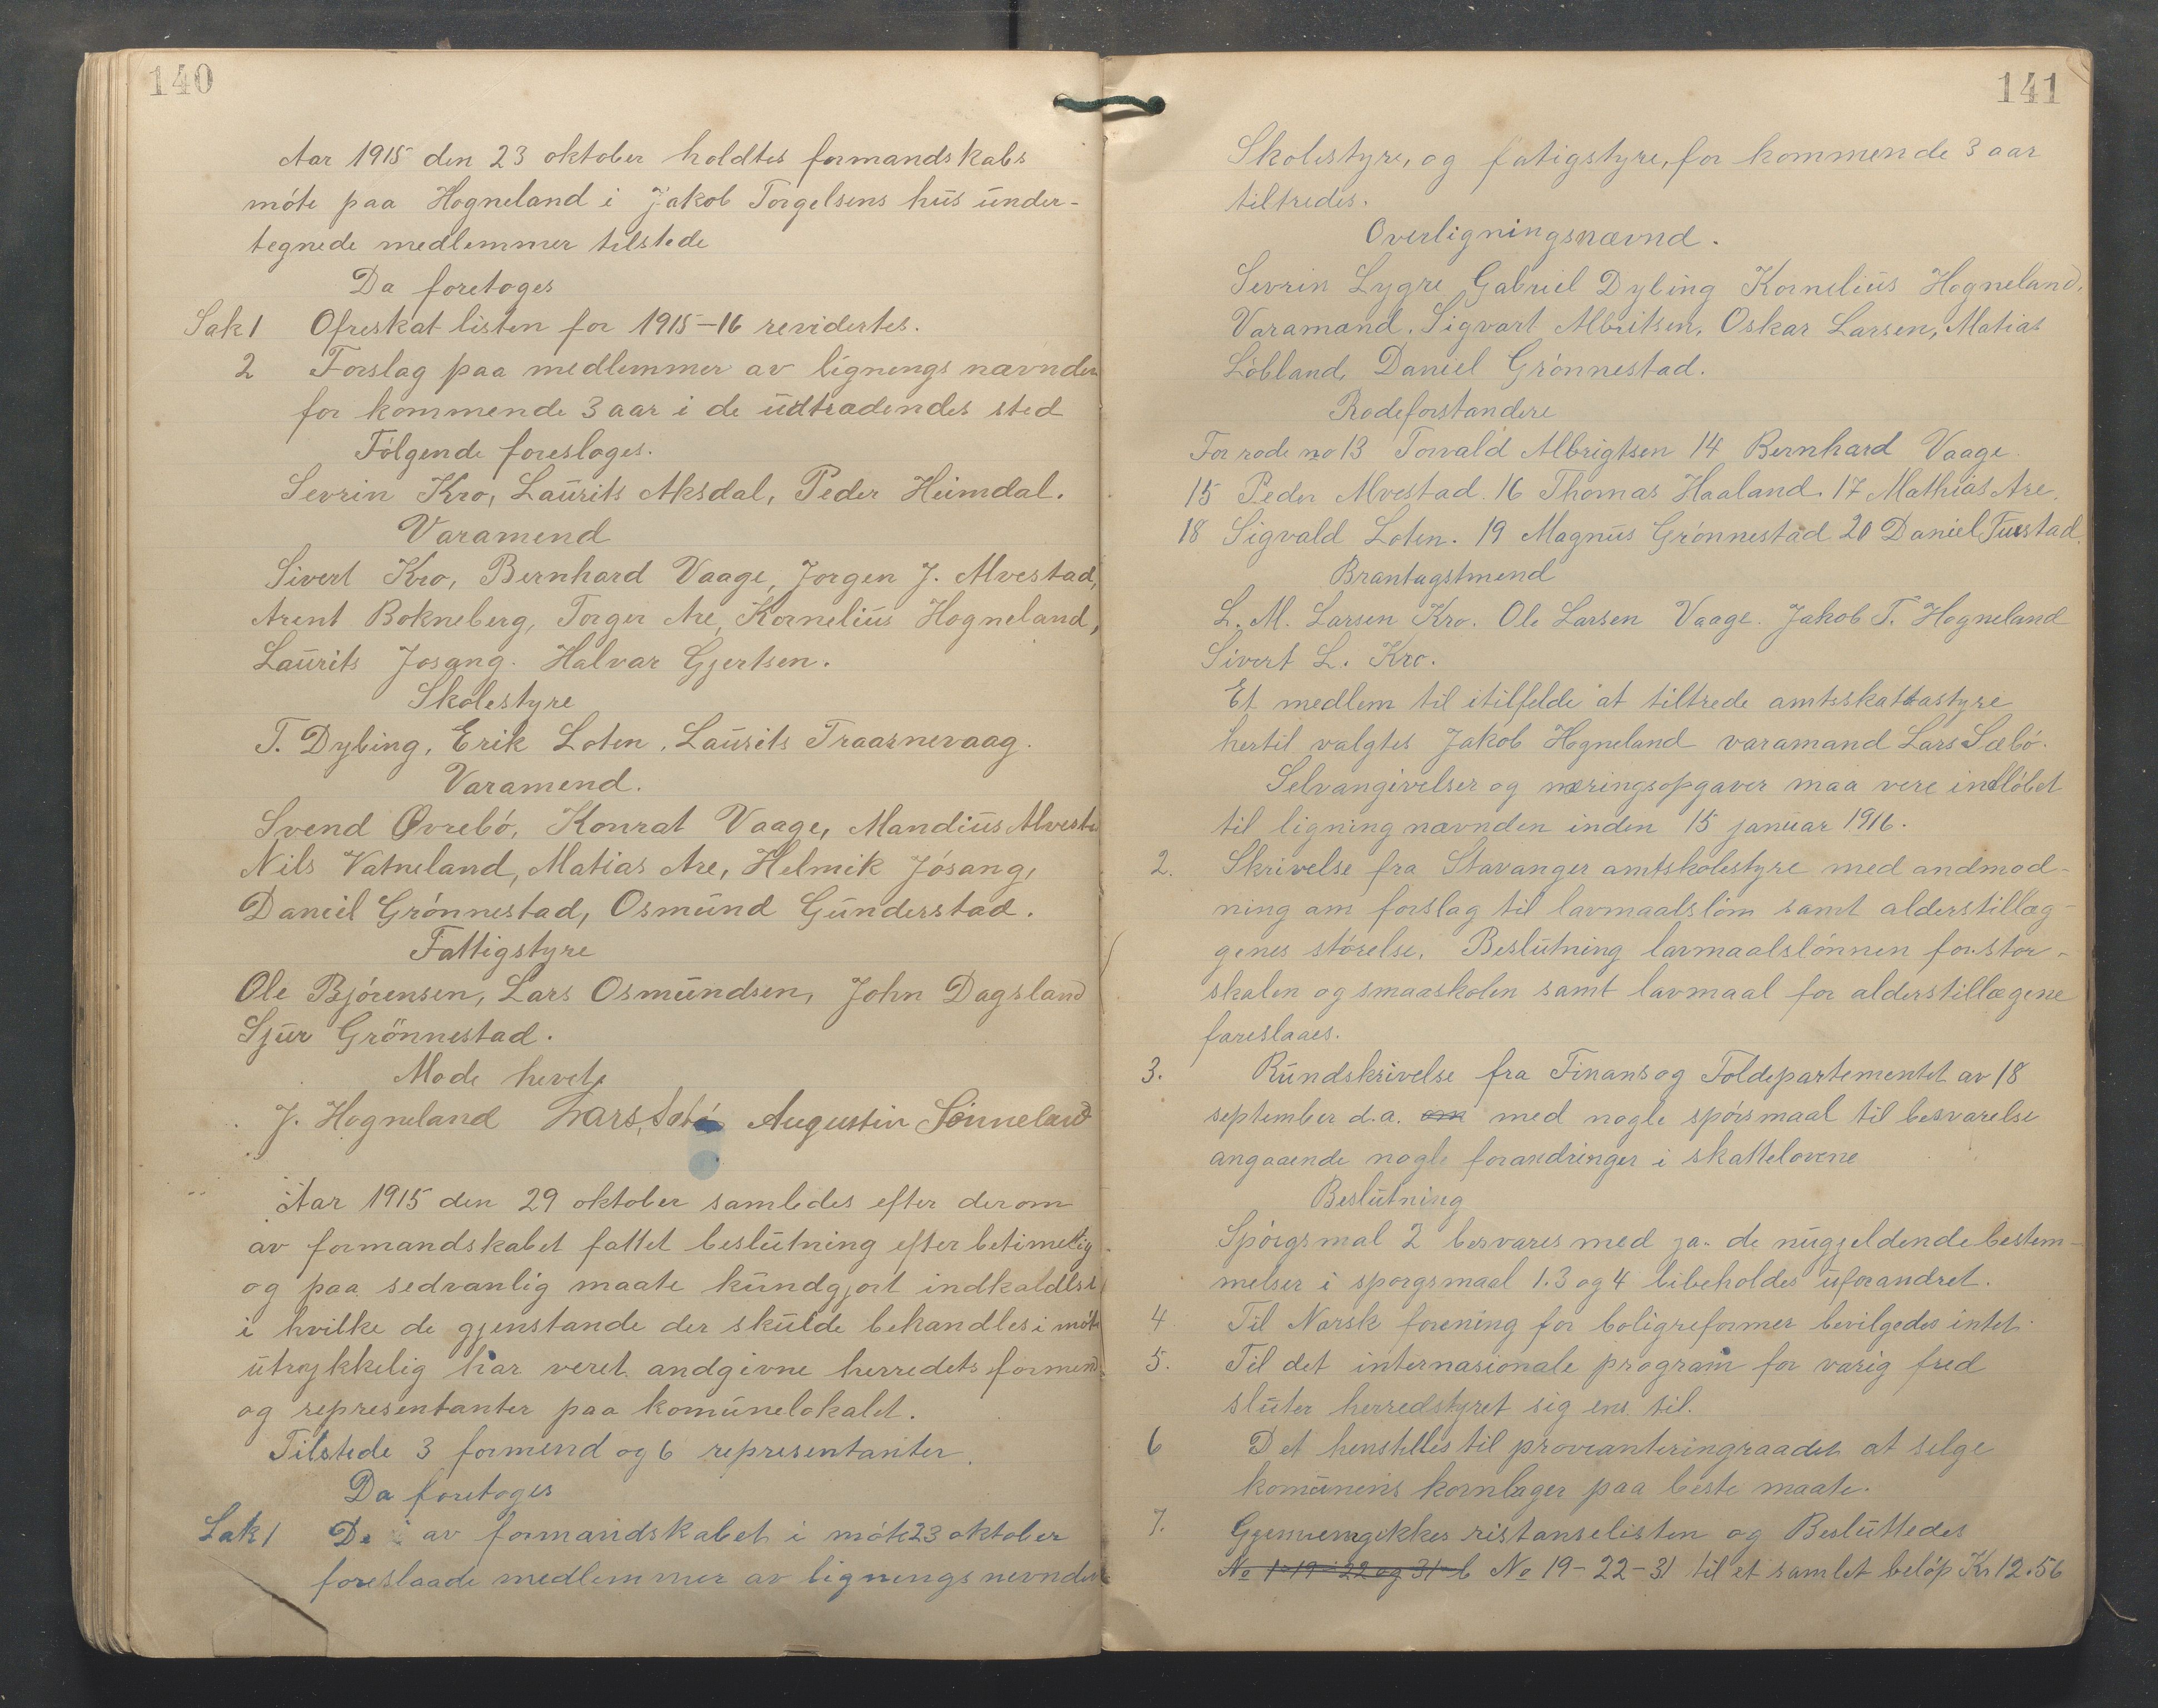 140
Aar 1915 den 23 oktober holdtes formandskabs
móte paa Hogneland i Jakob Torgelsens hus under-
tegnede medlemmer tilstede
Da foretoges
Sak 1 Ofreskat listen for 1915-16 revidertes.
2 Forslag paa medlemmer av lignings nævnden
for kommende 3 aar i de udtrædendes sted
Fólgende foresloges.
Sevrin Kro, Laurits Aksdal, Peder Heimdal.
Varamend
Sivert Kro, Bernhard Vaage, Jorgen J. Alvestad,
Arent Bokneberg, Torger Are, Kornelius Hogneland,
Laurits Josang. Halvar Gjertsen.
Skolestyre
T. Dybing, Erik Loten, Laurits Traasnevaag.
Varamend.
Svend Øvrebó, Konrat Vaage, Mandius Alvesta
Nils Vatneland, Matias Are, Helmik Jósang,
Daniel Grónnestad, Osmund Gunderstad.
Fattigstyre
Ole Bjórensen, Lars Osmundsen, John Dagsland
Sjur Grönnestad.
Mode hevet
J. Hogneland Lars Sæbó Augustin Sönneland
Aar 1915 den 29 oktober samledes efter derom
av formandskabet fattet beslutning efter betimelig
og paa sedvanlig maate kundgjort indkaldlse
i hvilke de gjenstande der skulde behandles i móte
utrykkelig har veret andgivne herredets formend
og representanter paa komunelokalet.
Tilstede 3 formend og 6 representanter.
Da foretoges
Sak 1 De av formandskabet i móte 23 oktober
foreslaade medlemmer av lignings nevnden
141
Skolestyre, og fatigstyre, for kommende 3 aar
tiltredes.
Overligningsnævnd.
Sevrin Lygre Gabriel Dybing Kornelius Hogneland,
Varamand, Sigvart Albritsen, Oskar Larsen, Matias
Lóbland, Daniel Grónnestad.
Rodeforstandere
For rode no 13 Torvald Albrigtsen 14 Bernhard Vaage
15 Peder Alvestad. 16 Thomas Haaland. 17 Mathias Are.
18 Sigvald Loten. 19 Magnus Grónnestad 20 Daniel Tuestad.
Brantagstmend
L. M. Larsen Kro. Ole Larsen Vaage. Jakob T. Hogneland
Sivert L. Kro.
Et medlem til itilfelde at tiltrede amtsskattastyre
hertil valgtes Jakob Hogneland varamand Lars Sæbó.
Selvangivelser og næringsopgaver maa vere indlóbet
til ligning nævnden inden 15 januar 1916.
2. Skrivelse fra Stavanger amtskolestyre med andmod-
ning om forslag til lavmaalslóm samt alderstillæg-
genes stórelse. Beslutning lavmaalslónnen for stor-
skolen og smaaskolen samt lavmaal for alderstillægene
fareslaaes.
3. Rundskrivelse fra Finans og Toldepartementet av 18
september d.a. om med nogle spórsmaal til besvarelse
angaaende nogle forandringer i skattelovene
Beslutning
Spórgsmal 2 besvares med ja. de nugjeldende bestem-
melser i sporgsmaal 1.3 og 4 bibeholdes uforandret.
4. Til Norsk forening for boligreformer bevilgedes intet.
5. Til det internasionale program for varig fred
sluter herredstyret sig ens til.
6 Det henstilles til provianteringraadet at selge
komunens kornlager paa beste maate.
7. Gjennemgikkes ristanselisten og Besluttedes
No 1-19-22 og 31 b No 19-22-31 til et samlet belóp Kr 12.56